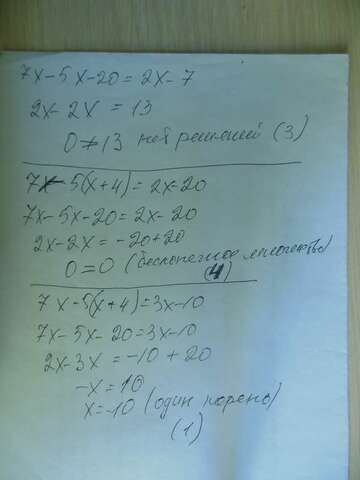 7x-5x-20=2x-7
2x-2x=13
0≠13 нет решений (3)
7x-5(x+4)=2x-20
7x-5x-20=2x-20
2x-2x=-20+20
0=0 (бесконечное множество)
(4)
7x-5(x+4)=3x-10
7x-5x-20=3x-10
2x-3x=-10+20
-x=10
x=-10 (один корень)
(1)